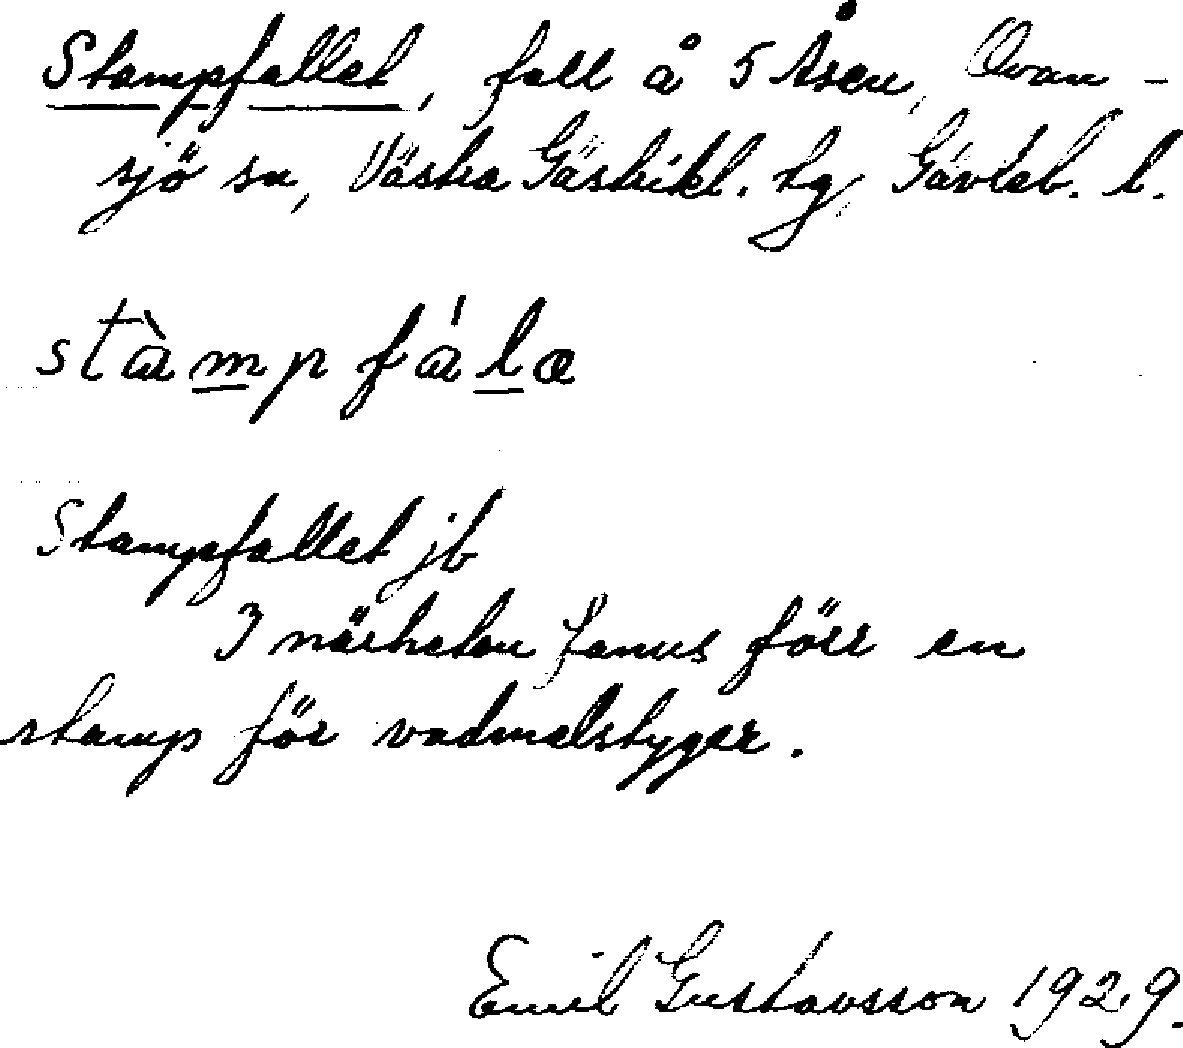 Stampfallet, fall å 5 Åsen, Ovan-
sjö sn, Västra Gästrikl. tg, Gävleb. l.
stàmpfála
Stampfallet jb
I närheten fanns förr en
stamp för vadmalstyger.
Emil Gustavsson 1929.